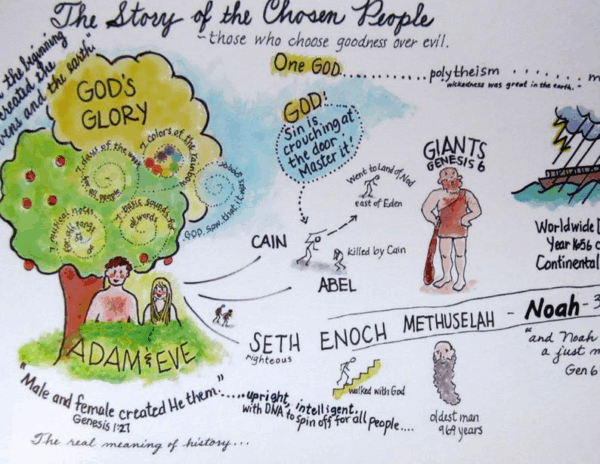 The Story of the Chosen People
~those who choose goodness over evil.
the beginning
created the
and the earth"
GOD'S
GLORY
7 days of the
for all people
7 colors of the rainbow
7 musical notes
for all songs
7 basis sounds for
all words
GOD saw that it was good
One GOD............polytheism.......m
"wickedness was great in the earth."
GOD:
Sin is
crouching at
the door.
Master it!
Went to Land of Nod
east of Eden
GIANTS
GENESIS 6
CAIN
killed by Cain
ABEL
Worldwide
Year 1656
Continental
SETH ENOCH METHUSELAH - Noah - 3
righteous
"and Noah
a just m
Gen 6
walked with God
oldest man
969 years
ADAM & EVE
"Male and female created He them."
Genesis 1:27
....upright, intelligent,
with DNA to spin off for all people....
The real meaning of history...